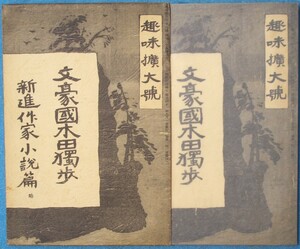 趣味擴大號
文豪國木田獨歩
新進作家小說篇
趣味擴大號
文豪國木田獨歩